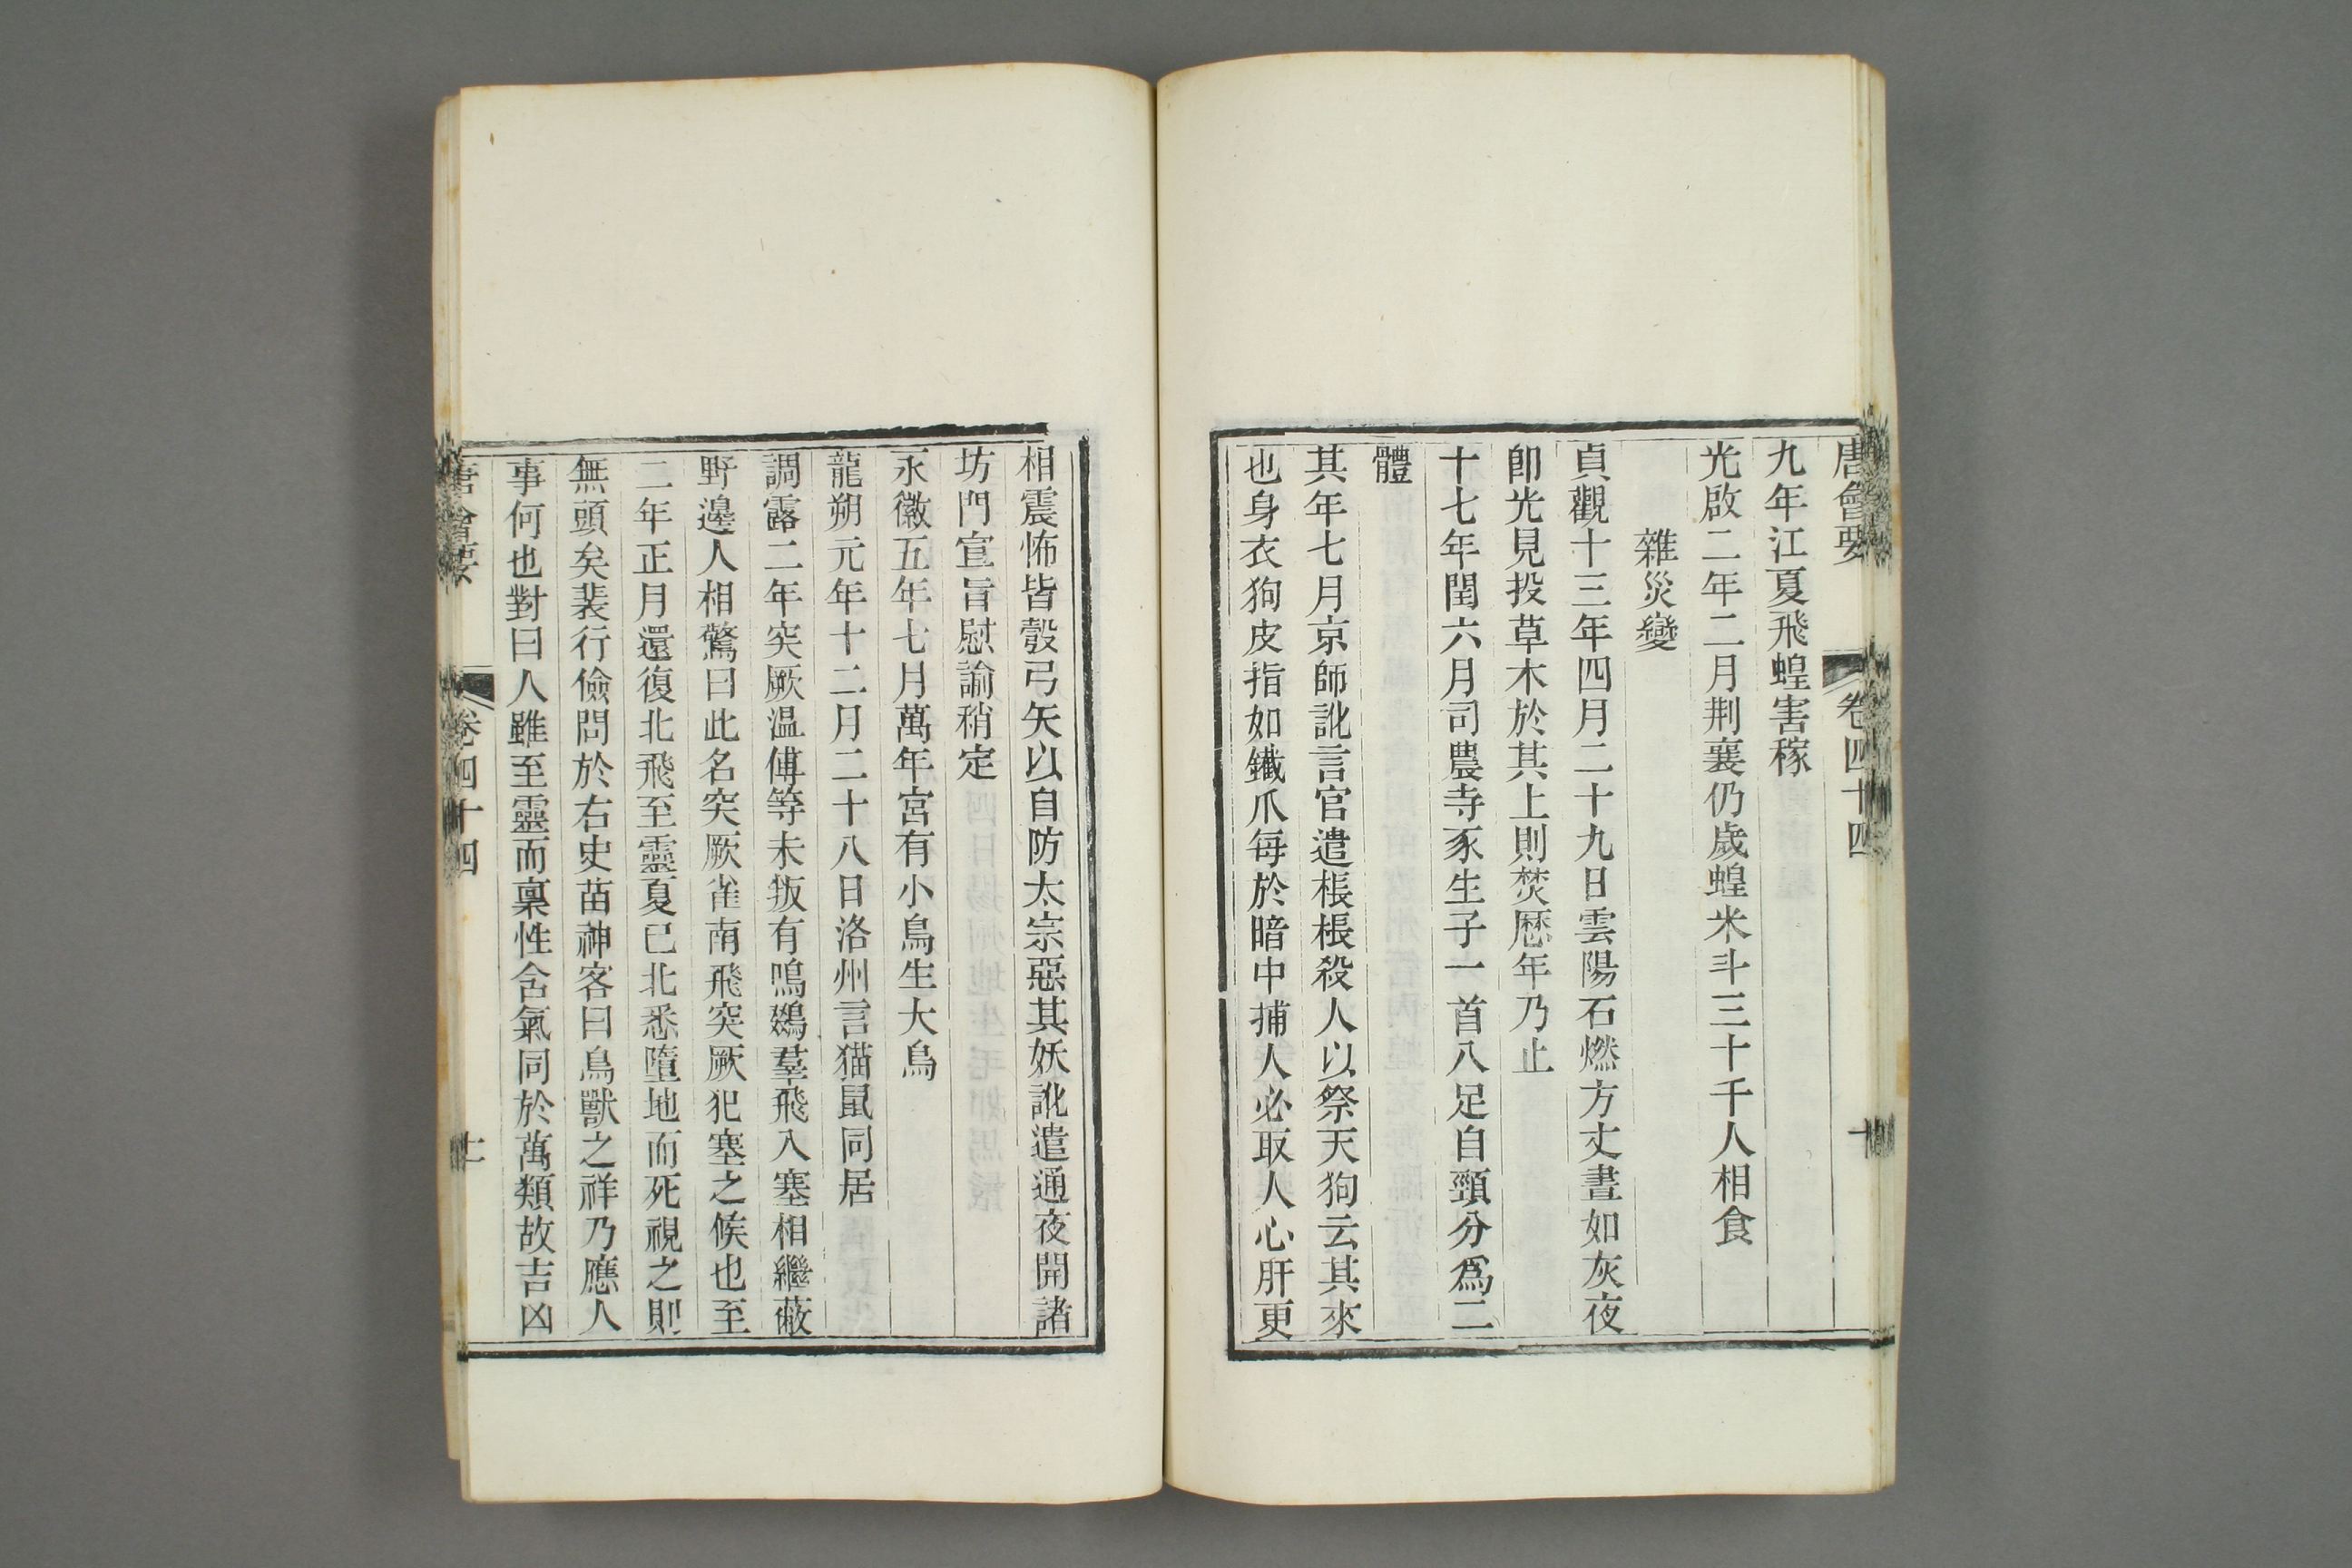 唐會要 卷四十四 十
九年江夏飛蝗害稼
光啟二年二月荆襄仍歲蝗米斗三十千人相食
雜災變
貞觀十三年四月二十九日雲陽石燃方丈晝如灰夜
卽光見投草木於其上則焚歷年乃止
十七年閏六月司農寺豕生子一首八足自頸分爲二
體
其年七月京師訛言官遣棖棖殺人以祭天狗云其來
也身衣狗皮指如鐵爪每於暗中捕人必取人心肝更
相震怖皆彀弓矢以自防太宗惡其妖訛遣通夜開諸
坊門宣旨慰諭稍定
永徽五年七月萬年宮有小鳥生大鳥
龍朔元年十二月二十八日洛州言猫鼠同居
調露二年突厥温傅等未叛有鳴鵽羣飛入塞相繼蔽
野邊人相驚曰此名突厥雀南飛突厥犯塞之候也至
二年正月還復北飛至靈夏已北悉墮地而死視之則
無頭矣裴行儉問於右史苗神客曰鳥獸之祥乃應人
事何也對曰人雖至靈而稟性含氣同於萬類故吉凶
唐會要 卷四十四 十一